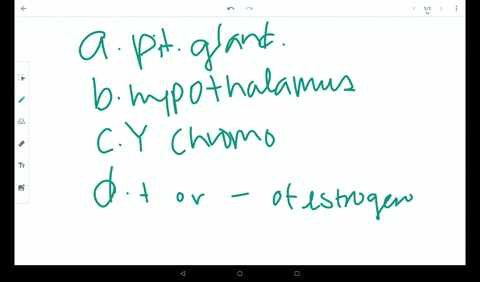 1/1
Tr
a. pit. gland.
b. hypothalamus
c. Y chromo
d. + or - of estrogen